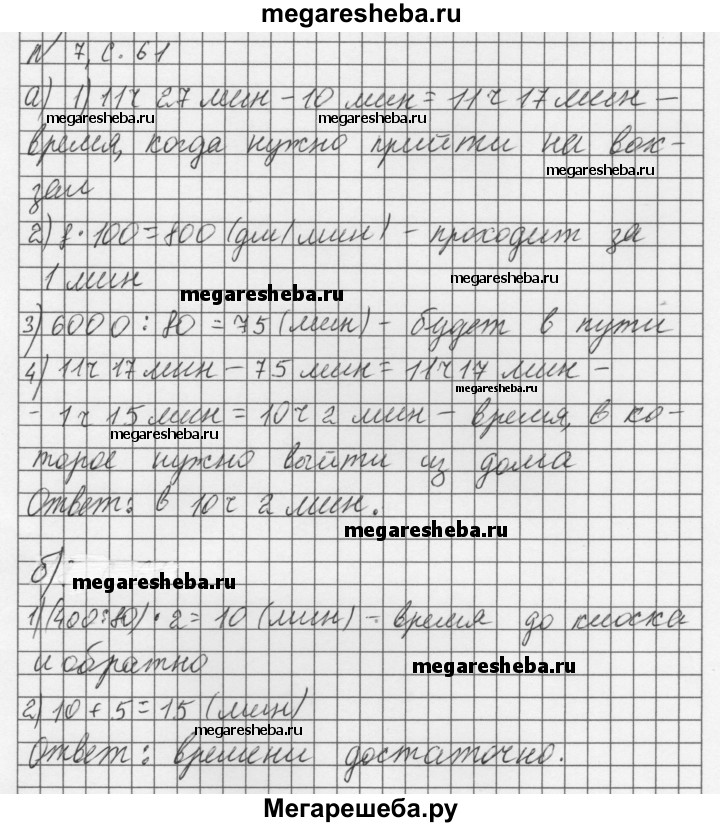 megaresheba.ru
N 7, с. 61
а) 1) 11ч 27 мин – 10 мин = 11ч 17 мин –
megaresheba.ru megaresheba.ru
время, когда нужно прийти на вок-
megaresheba.ru
зал
2) 8 · 100 = 800 (дм/мин) – проходит за
1 мин megaresheba.ru
megaresheba.ru
3) 6000 : 80 = 75 (мин) – будет в пути
4) 11ч 17 мин – 75 мин = 11ч 17 мин –
megaresheba.ru
– 1ч 15 мин = 10ч 2 мин – время, в ко-
megaresheba.ru
торое нужно выйти из дома
Ответ: в 10ч 2 мин.
megaresheba.ru
б)
megaresheba.ru
1) (400 : 80) · 2 = 10 (мин) – время до киоска
и обратно megaresheba.ru
2) 10 + 5 = 15 (мин)
megaresheba.ru
Ответ: времени достаточно.
Мегарешеба.ру